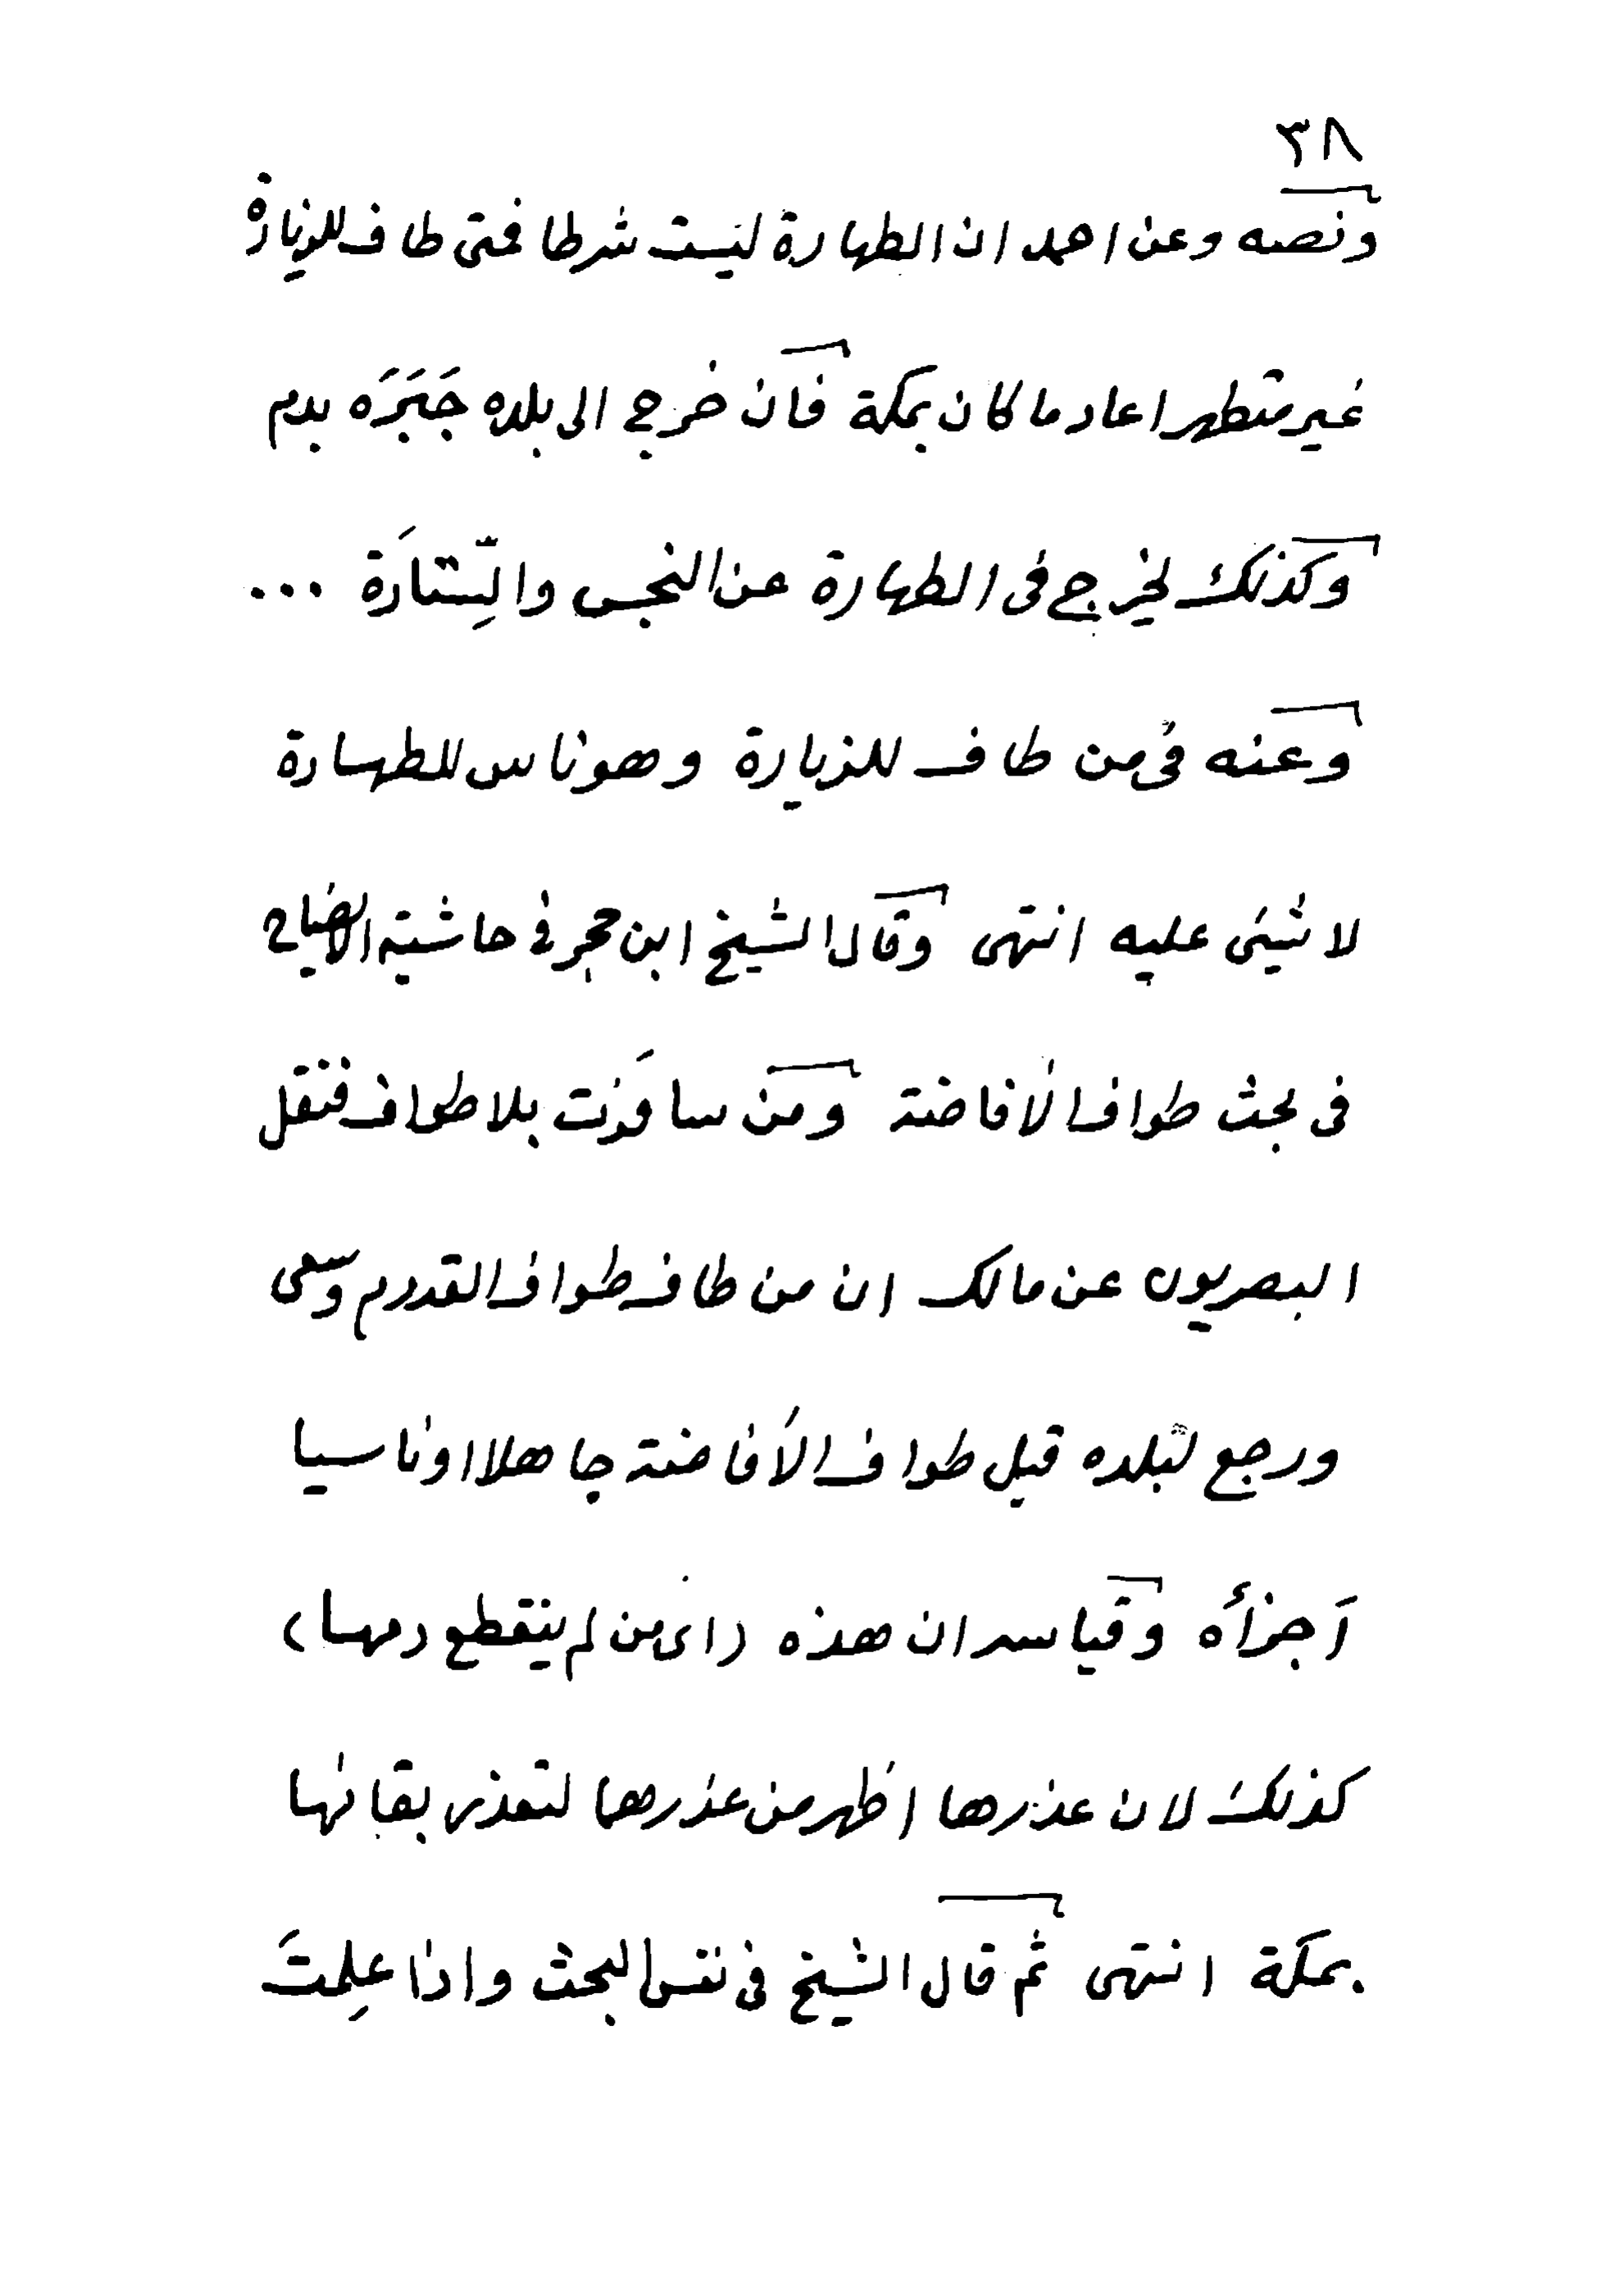 ٣٨
ونصه وعن احمد ان الطهارة ليست شرطا فمتى طاف للزيارة
غير متطهر اعاد ما كان بمكة فان خرج الى بلده جَبَرَه بدم
وكذلك يخرج فى الطهارة عن النجس والسِّتارَة ...
وعنه فى من طاف للزيارة وهو ناس للطهارة
لا شيئ عليه انتهى وقال الشيخ ابن حجر فى حاشية الايضاح
فى بحث طواف الأفاضة ومن سافرَت بلا طواف فنقل
البصريون عن مالك ان من طاف طواف القدوم وسعى
ورجع لبلده قبل طواف الأفاضة جاهلا اوناسيا
أجزأه وقياسه ان هذه (اى من لم ينقطع دمها)
كذلك لان عذرها اظهر من عذرهما لتعذر بقائها
بمكة انتهى ثم قال الشيخ فى نفس البحث واذا علِمتَ